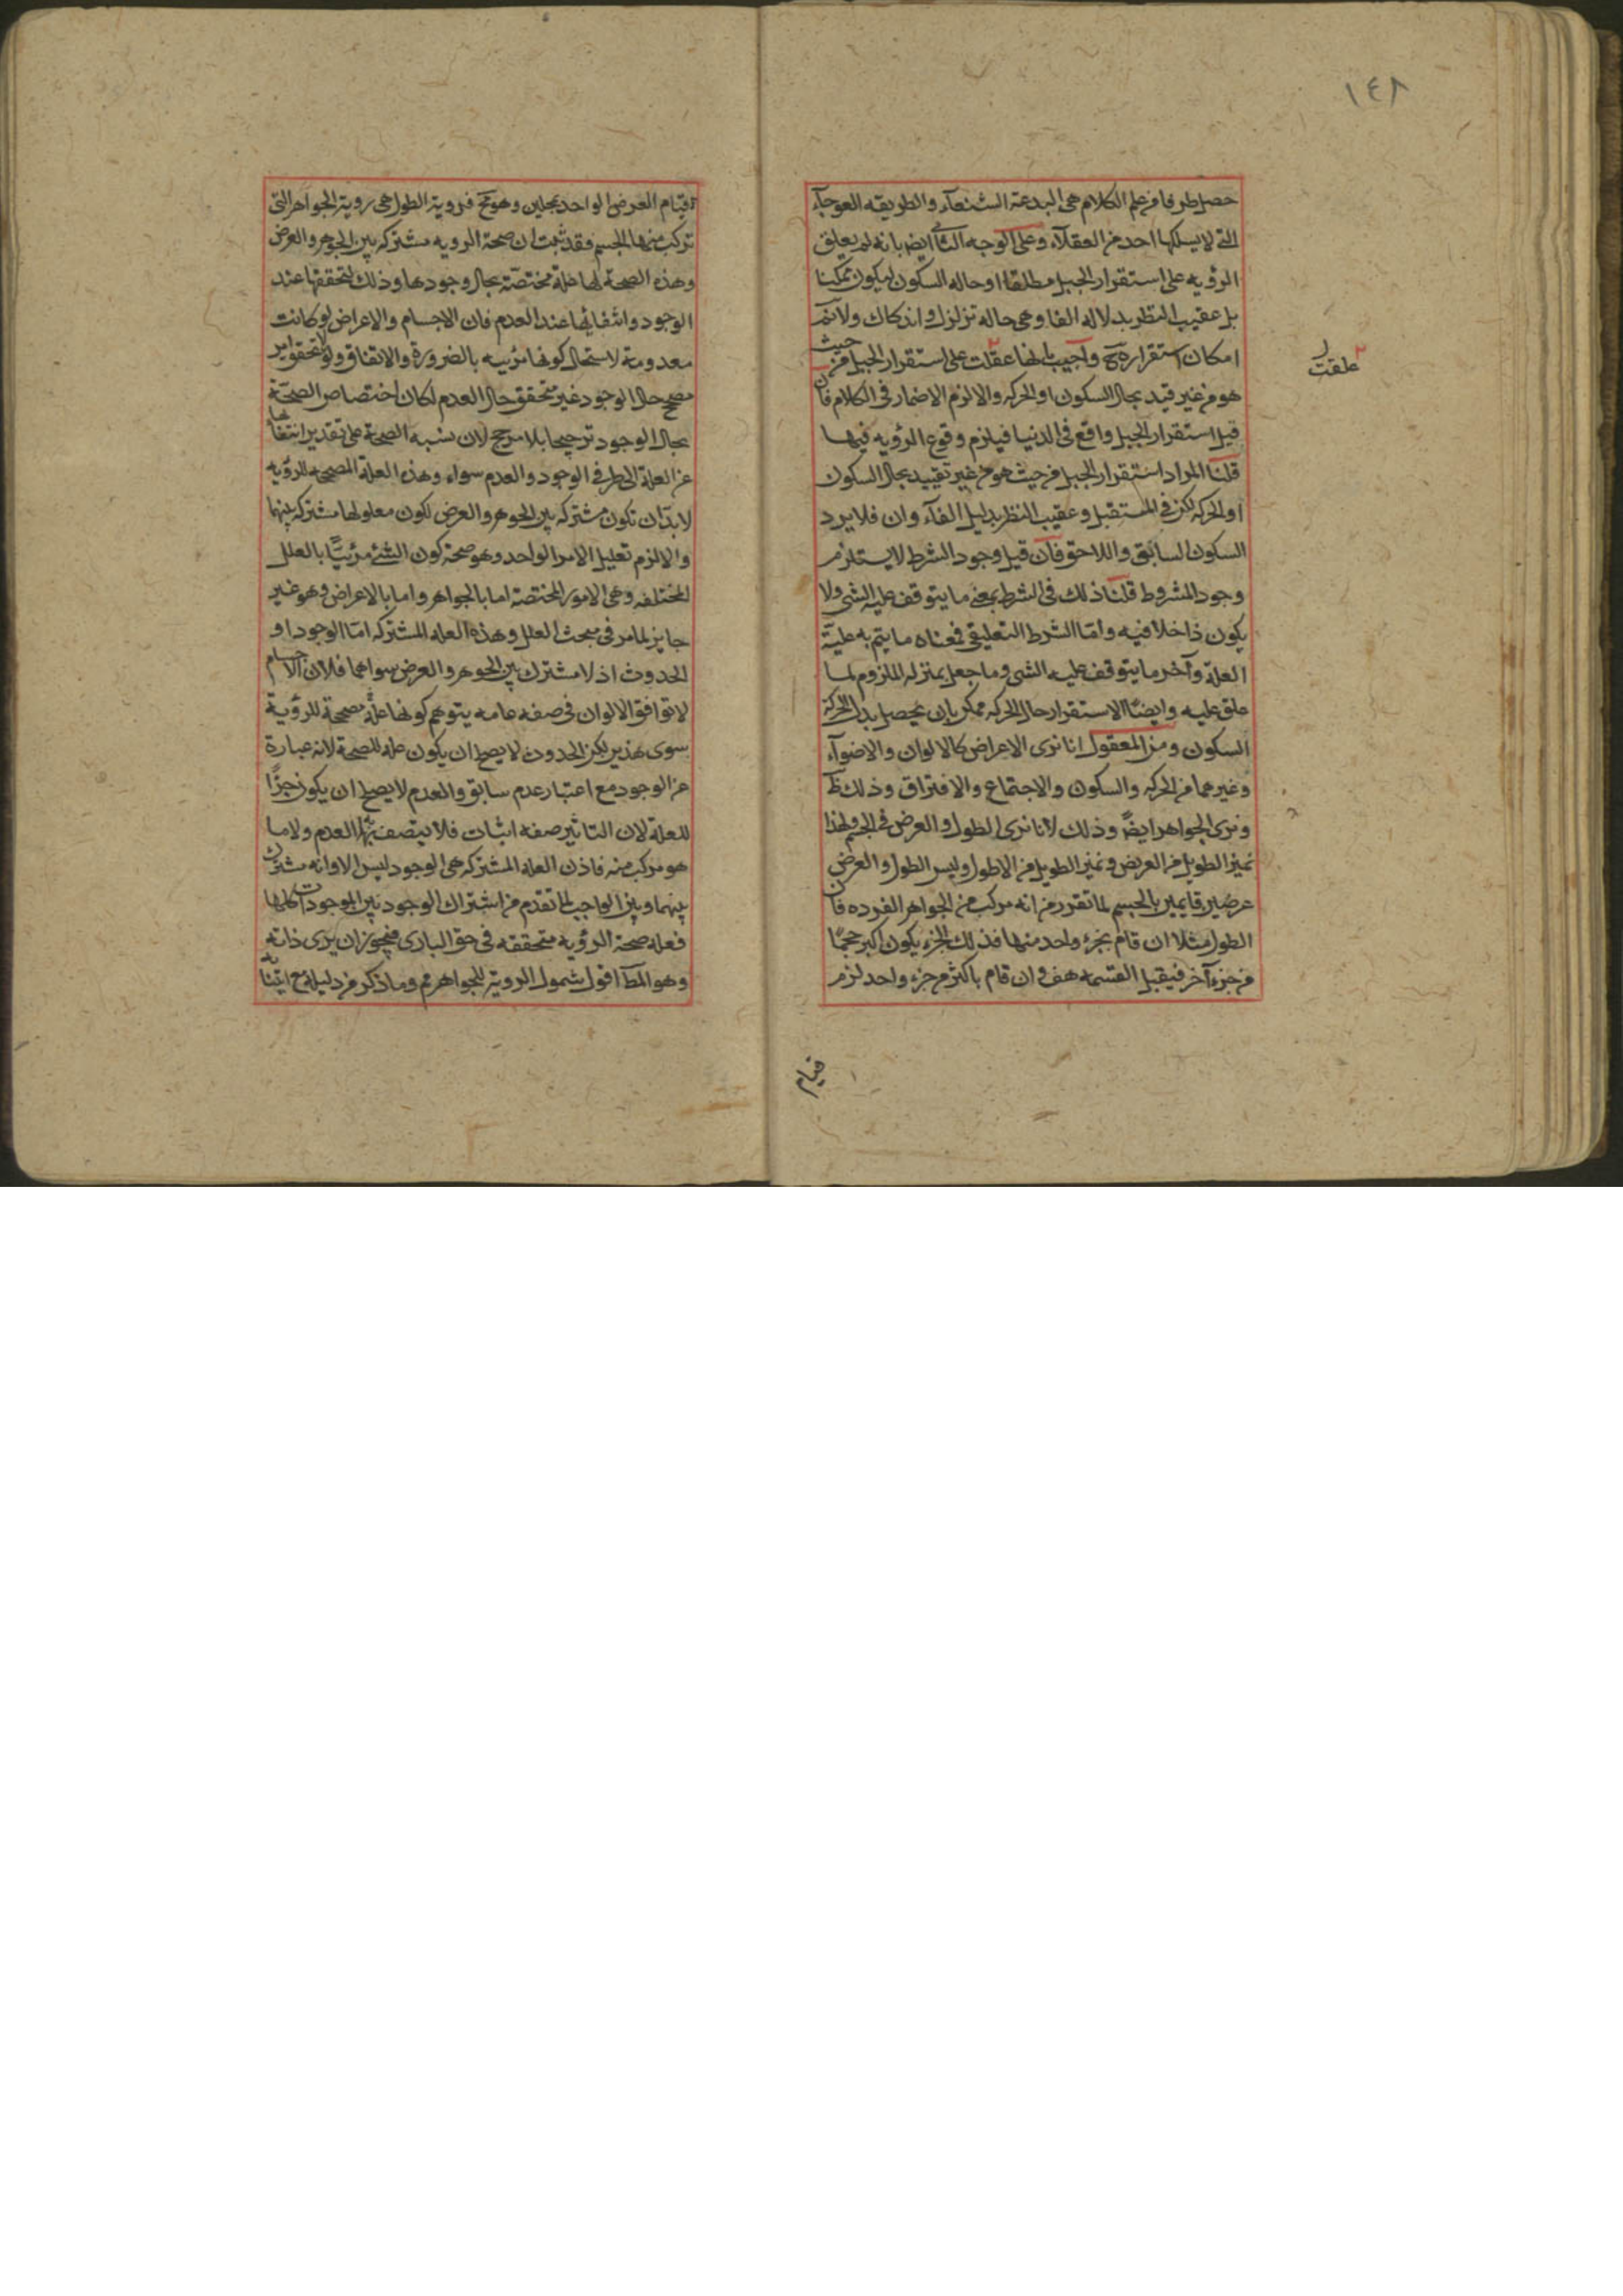 ١٤٨
حصل طرفا من علم الكلام هى البدعة الشنعآء والطريقه العوجآء
التى لا يسلكها احد من العقلآء وعلى الوجه الثانى ايضا بانه لم يعلق
الرؤيه على استقرار الجبل مطلقا او حاله السكون ليكون ممكنا
بل عقيب النظر بدلاله الفا وهى حاله تزلزل واندكاك ولانم
امكان استقراره ح واجيب بانها علقت على استقرار الجبل من حيث
علقت
هو من غير قيد بحال السكون او الحركه والا لزم الاضمار فى الكلام فان
قيل استقرار الجبل واقع فى الدنيا فيلزم وقوع الرؤيه فيها
قلنا المراد استقرار الجبل من حيث هو من غير تقييد بحال السكون
او الحركه لكن فى المستقبل وعقيب النظر بدليل الفآء وان فلا يرد
السكون السابق واللاحق فان قيل وجود الشرط لا يستلزم
وجود المشروط قلنا ذلك فى الشرط بمعنى ما يتوقف عليه الشى ولا
يكون داخلا فيه واما الشرط التعليقى فمعناه ما يتم به علية
العلة وآخر ما يتوقف عليه الشى وما جعل بمنزله الملزوم لما
علق عليه وايضا الاستقرار حال الحركه ممكن بان يحصل بدل الحركة
السكون ومن المعقول انا نرى الاعراض كالالوان والاضوآء
وغيرهما من الحركه والسكون والاجتماع والافتراق وذلك ظ
ونرى الجواهر ايضا وذلك لانا نرى الطول والعرض فى الجسم ولهذا
نميز الطويل من العريض ونميز الطويل من الاطول وليس الطول والعرض
عرضين قايمين بالجسم لما تقرر من انه مركب من الجواهر الفرده فان
الطول مثلا ان قام بجزء واحد منها فذلك الجزء يكون اكبر حجما
من جزء آخر فيقبل القسمه هف وان قام باكثر من جزء واحد لزم
قيام
قيام العرض الواحد بمحلين وهو مح فروية الطول هى روية الجواهر التى
تركب منها الجسم فقد ثبت ان صحة الرويه مشتركه بين الجوهر والعرض
وهذه الصحة لها علة مختصة بحال وجودها وذلك لتحققها عند
الوجود وانتفائها عند العدم فان الاجسام والاعراض لو كانت
معدومة لاستحال كونها مرئيه بالضرورة والاتفاق ولولا تحقق امر
مصحح حال الوجود غير متحقق حال العدم لكان اختصاص الصحة
بحال الوجود ترجيحا بلا مرجح لان نسبه الصحة على تقدير انتفائها
عن العلة الى طرفى الوجود والعدم سواء وهذه العلة المصححه للرؤيه
لا بد ان تكون مشتركه بين الجوهر والعرض لكون معلولها مشتركه بينهما
والا لزم تعليل الامر الواحد وهو صحة كون الشئ مرئيا بالعلل
المختلفه وهى الامور المختصة اما بالجواهر واما بالاعراض وهو غير
جايز لما مر فى مبحث العلل وهذه العله المشتركه اما الوجود او
الحدوث اذ لا مشترك بين الجوهر والعرض سواهما فلان الاجسام
لا توافق الالوان فى صفه عامه يتوهم كونها علة مصححة للرؤية
سوى هذين لكن الحدوث لا يصلح ان يكون علة للصحة لانه عبارة
عن الوجود مع اعتبار عدم سابق والعدم لا يصلح ان يكون جزءا
للعلة لان التاثير صفه اثبات فلا يتصف بها العدم ولا ما
هو مركب منه فاذن العله المشتركه هى الوجود ليس الا وانه مشترك
بينهما وبين الواجب لما تقدم من اشتراك الوجود بين الموجودات كلها
فعله صحة الرؤيه متحققه فى حق البارى فيجوز ان يرى ذاته
وهو المط اقول شمول الروية للجواهر مم وما ذكر من دليله